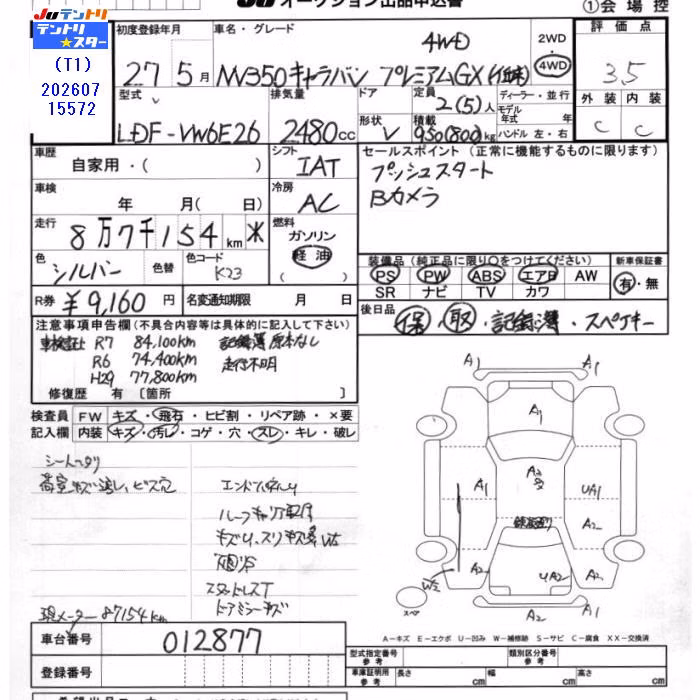 JU オークション出品申込書
①会場控
JUテントリ
テントリ★スター
(T1)
202607
15572
初度登録年月
車名・グレード
2WD
4WD
評価点
27 5月
NV350キャラバン プレミアムGX
4WD
3.5
型式
排気量
ドア
定員
ディーラー・並行
外装 内装
LDF-VW6E26
2480cc
2(5)人
モデル年式 年
形状
V
積載
950(800)kg
ハンドル 左・右
C C
車歴
自家用・( )
シフト
IAT
セールスポイント (正常に機能するものに限ります)
プッシュスタート
Bカメラ
車検
年 月( 日)
冷房
AC
走行
8万7千154km
燃料
ガソリン
軽油
色
シルバー
色替
色コード
K23
装備品 (純正品に限り○をつけてください)
新車保証書
PS PW ABS エアB AW
SR ナビ TV カワ
有・無
R券 ¥9,160円
名変通知期限 月 日
後日品
保・取・記録簿・スペアキー
注意事項申告欄 (不具合内容等は具体的に記入して下さい)
R7 84,100km
記録簿原本なし
R6 74,400km
走行不明
H29 77,800km
修復歴 有 〔箇所 〕
検査員 FW キズ・飛石・ヒビ割・リペア跡・×要
記入欄 内装 キズ・汚レ・コゲ・穴・スレ・キレ・破レ
シートヘタリ
ビス穴
キズ
スタッドレスT
ドアミラーキズ
現メーター87154km
A
A1
A1
A1
A2
A1
UA1
A2
W2
A2
UA2
A2
A2
A1
スペア
A―キズ E―エクボ U―凹み W―補修跡 S―サビ C―腐食 XX―交換済
車台番号 012877
登録番号
型式指定番号 参考
類別区分番号 参考
車庫証明用 参考
長さ cm
幅 cm
高さ cm